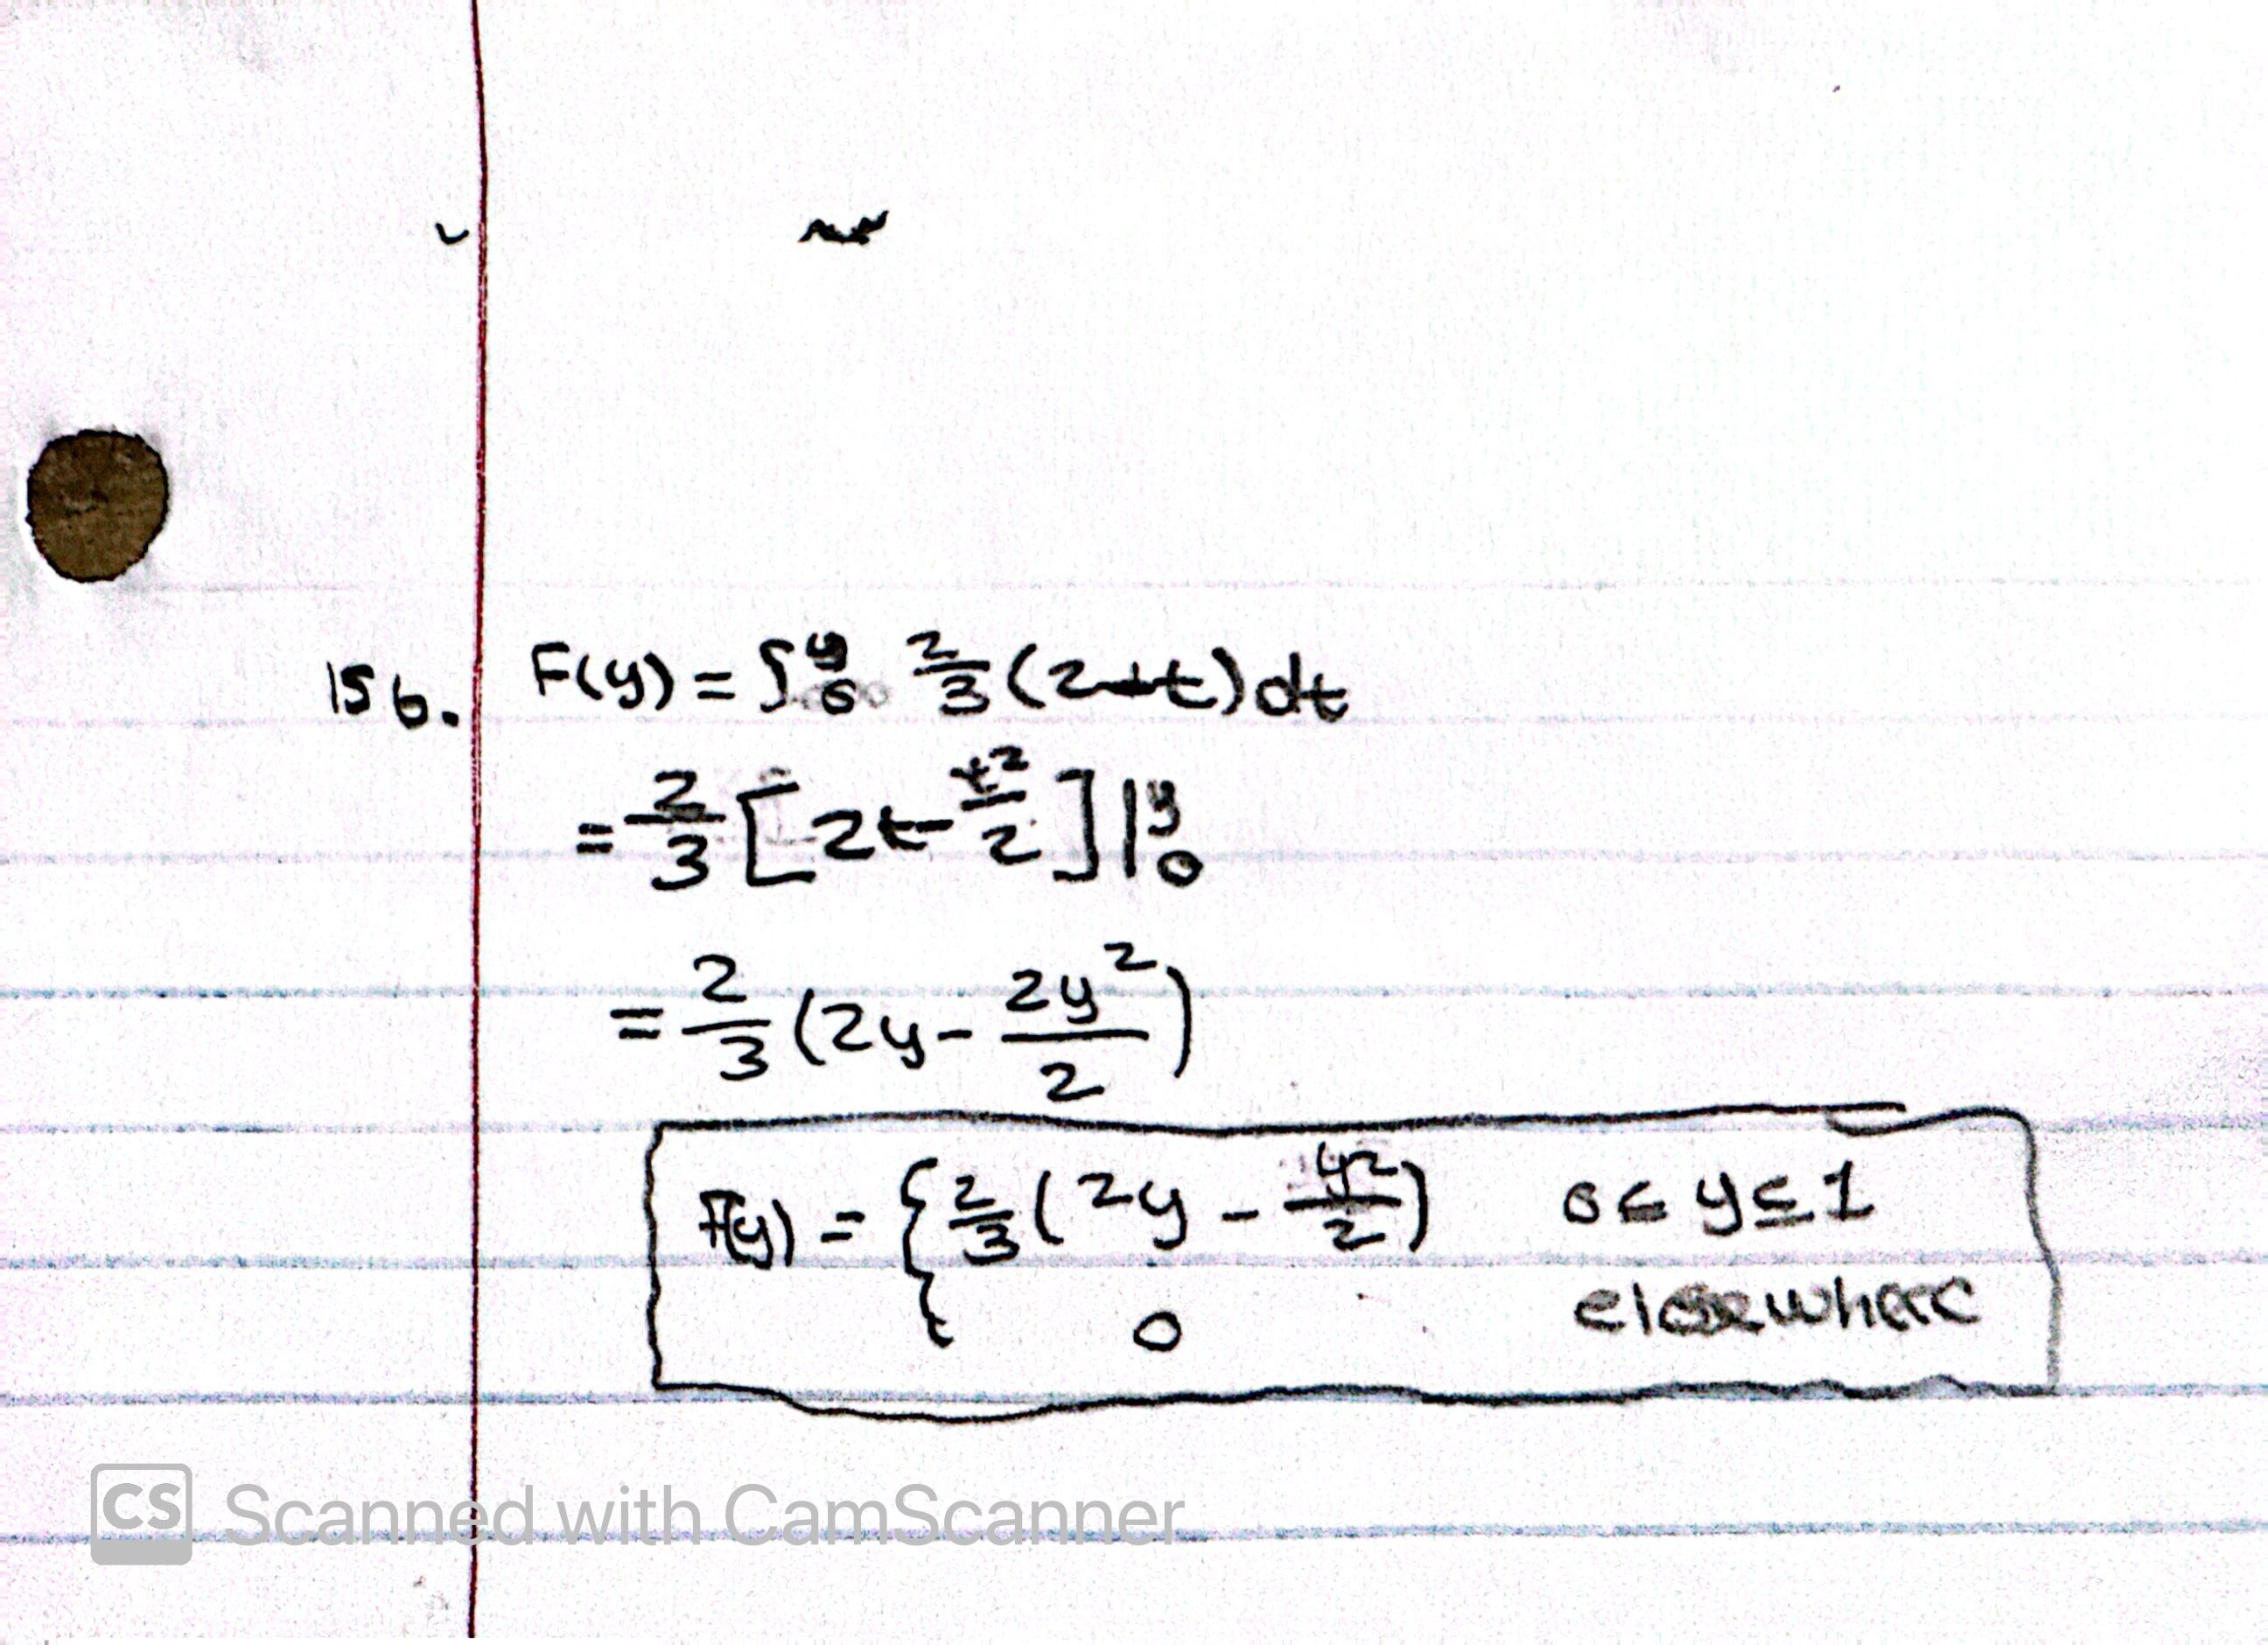 15b. F(y) = ∫₀ʸ 2/3 (2-t) dt
= 2/3 [2t - t²/2] |₀ʸ
= 2/3 (2y - 2y²/2)
F(y) = { 2/3 (2y - y²/2) 0 ≤ y ≤ 1
{ 0 elsewhere
CS Scanned with CamScanner